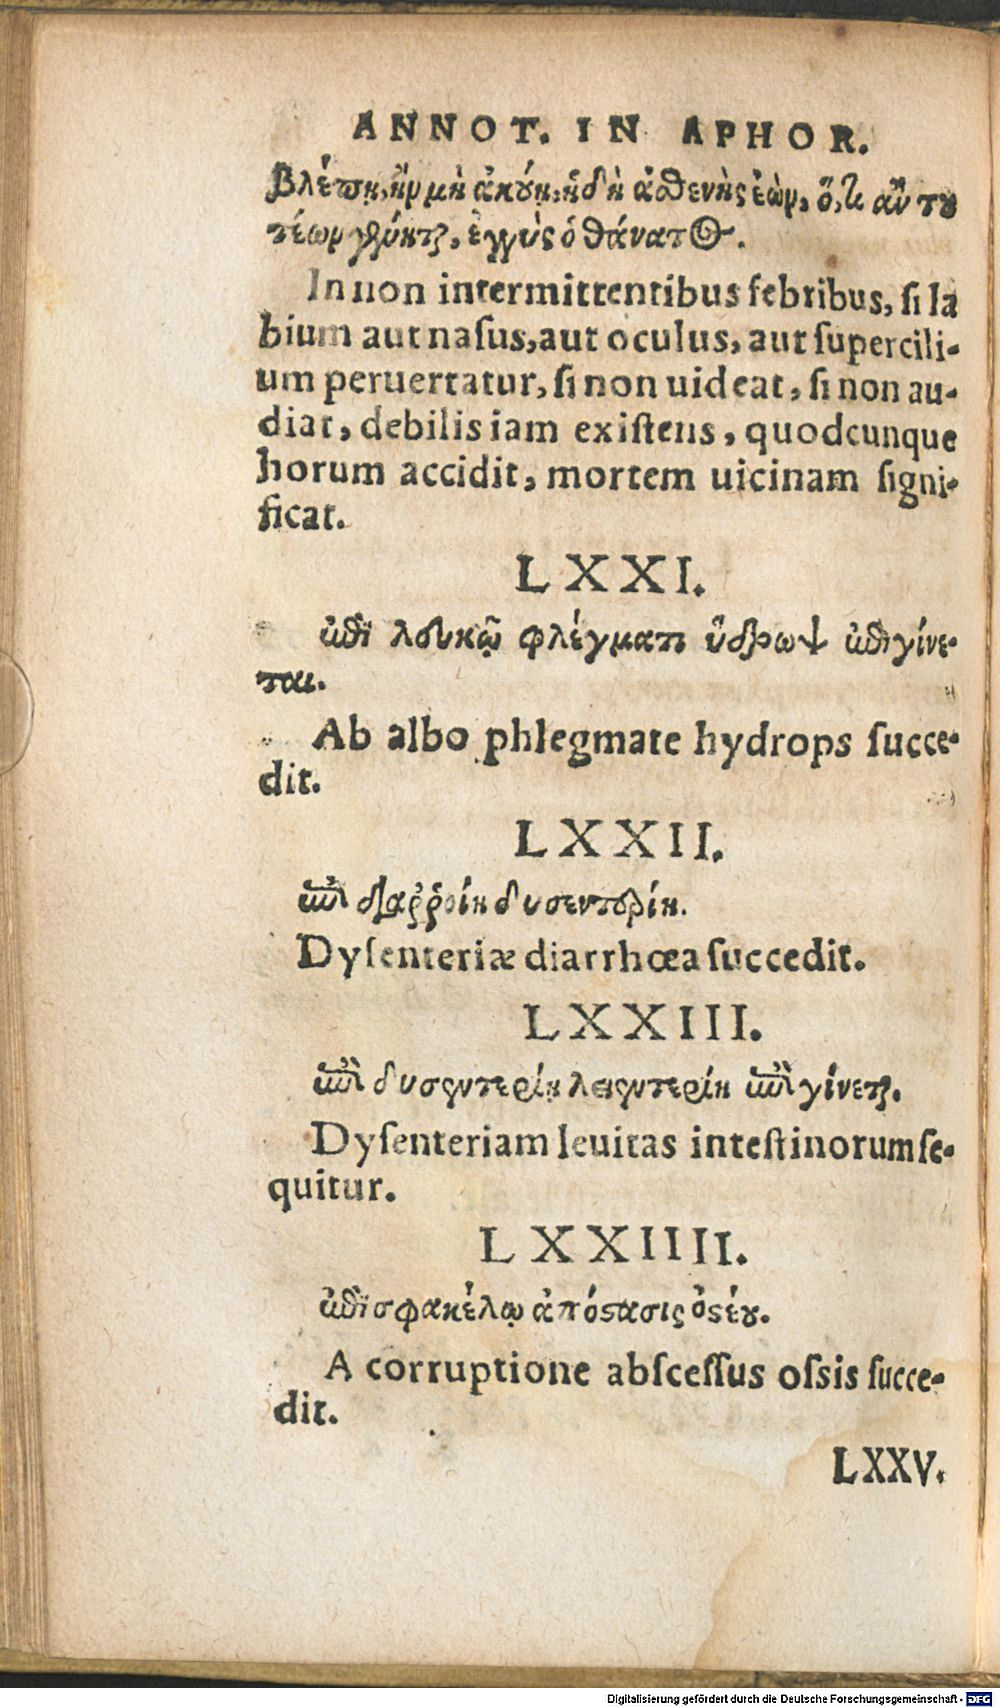 ANNOT. IN APHOR.
βλέπῃ, ἢν μὴ ἀκούῃ, ἤδη ἀσθενὴς ἐὼν, ὅ,τι ἂν του
τέων γένηται, ἐγγὺς ὁ θάνατος.
In non intermittentibus febribus, si la
bium aut nasus, aut oculus, aut supercili-
um peruertatur, si non uideat, si non au-
diat, debilis iam existens, quodcunque
horum accidit, mortem uicinam signi-
ficat.
LXXI.
ἐπὶ λευκῷ φλέγματι ὕδρωψ ἐπιγίνε-
ται.
Ab albo phlegmate hydrops succe-
dit.
LXXII.
ἐπὶ διαῤῥοίη δυσεντερίη.
Dysenteriæ diarrhœa succedit.
LXXIII.
ἐπὶ δυσεντερίῃ λειεντερίη ἐπιγίνεται.
Dysenteriam leuitas intestinorum se-
quitur.
LXXIIII.
ἐπὶ σφακέλῳ ἀπόστασις ὀστέου.
A corruptione abscessus ossis succe-
dit.
LXXV.
Digitalisierung gefördert durch die Deutsche Forschungsgemeinschaft - DFG